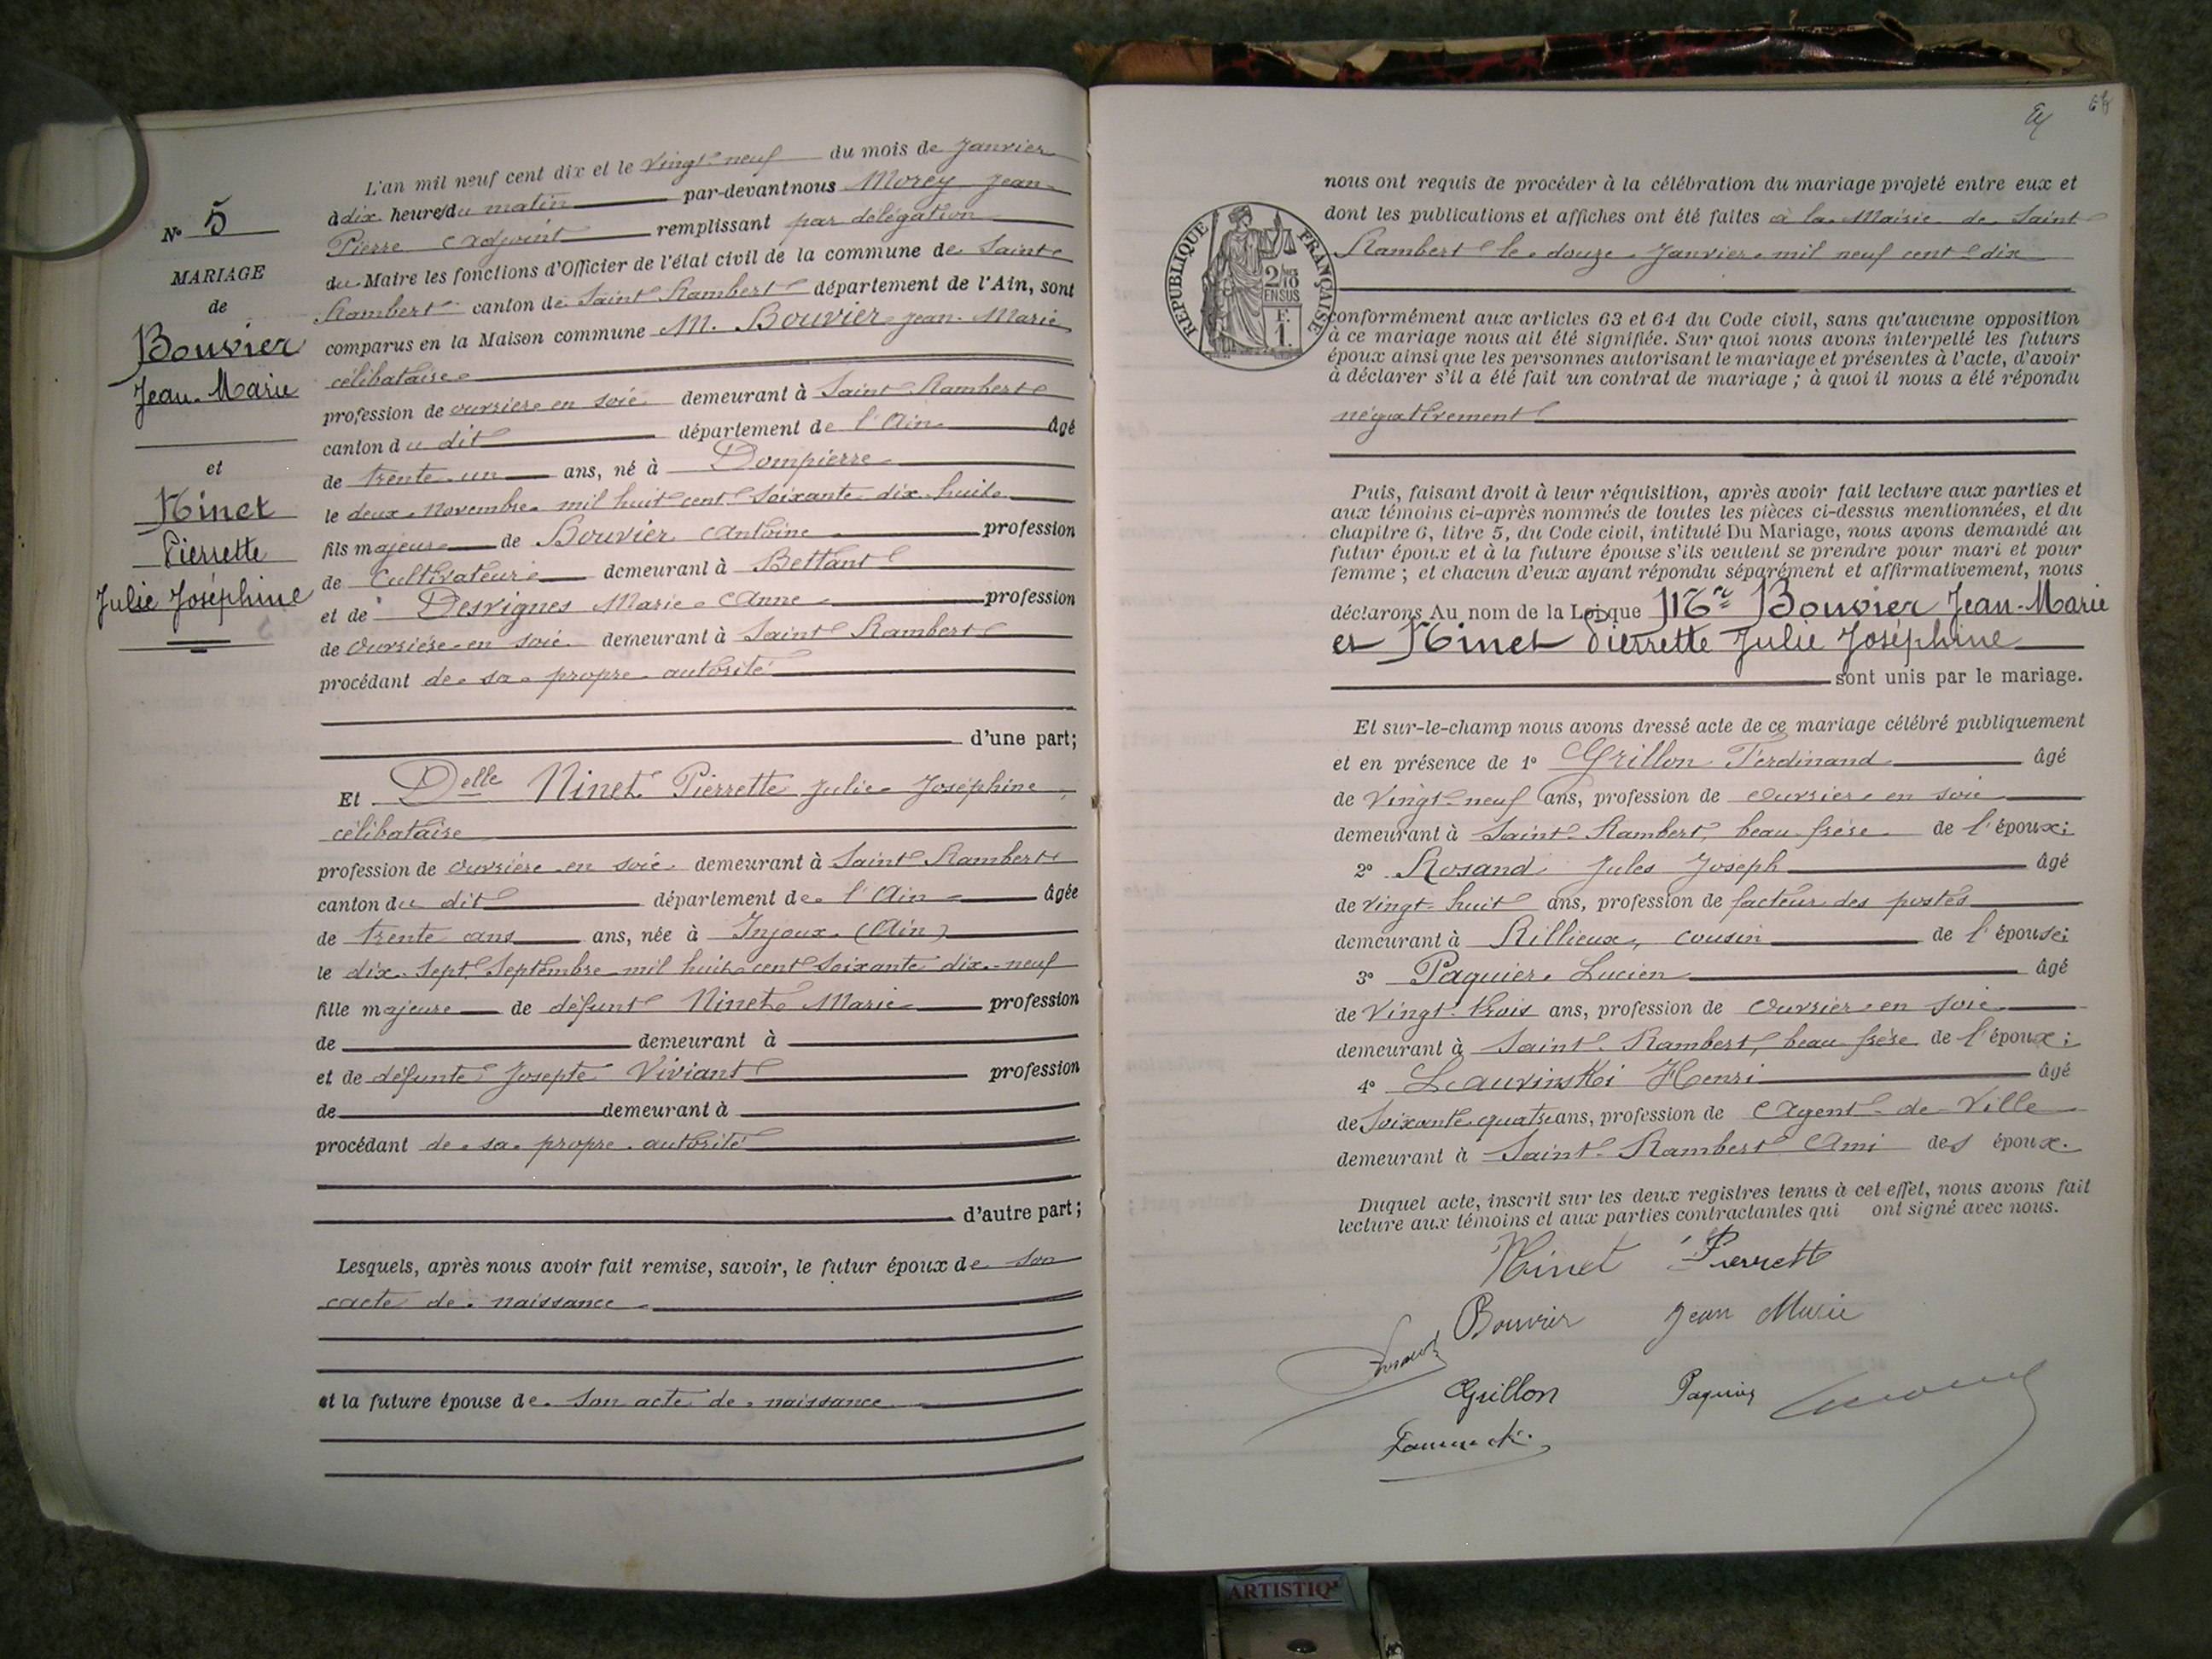 N° 5
MARIAGE
de
Bouvier
Jean-Marie
et
Ninet
Pierrette
Julie Joséphine
L'an mil neuf cent dix et le vingt-neuf du mois de Janvier
à dix heures du matin par-devant nous Morey Jean-
Pierre Adjoint remplissant par délégation
du Maire les fonctions d'Officier de l'état civil de la commune de Saint
Rambert canton de Saint Rambert département de l'Ain, sont
comparus en la Maison commune M. Bouvier Jean-Marie
célibataire
profession de ouvrier en soie demeurant à Saint Rambert
canton du dit département de l'Ain âgé
de trente-un ans, né à Dompierre
le deux Novembre mil huit cent soixante-dix-huit
fils majeur de Bouvier Antoine profession
de Cultivateur demeurant à Bettant
et de Desvignes Marie-Anne profession
de Ouvrière en soie demeurant à Saint Rambert
procédant de sa propre autorité
d'une part;
Et Delle Ninet Pierrette Julie Joséphine
célibataire
profession de ouvrière en soie demeurant à Saint Rambert
canton du dit département de l'Ain âgée
de trente ans ans, née à Injoux (Ain)
le dix-sept Septembre mil huit cent soixante dix-neuf
fille majeure de défunt Ninet Marie profession
de demeurant à
et de défunte Josepte Viviant profession
de demeurant à
procédant de sa propre autorité
d'autre part;
Lesquels, après nous avoir fait remise, savoir, le futur époux de son
acte de naissance
et la future épouse de son acte de naissance
nous ont requis de procéder à la célébration du mariage projeté entre eux et
dont les publications et affiches ont été faites à la Mairie de Saint
Rambert le douze Janvier mil neuf cent dix
RÉPUBLIQUE FRANÇAISE
2/10
EN SUS
F.
1.
conformément aux articles 63 et 64 du Code civil, sans qu'aucune opposition
à ce mariage nous ait été signifiée. Sur quoi nous avons interpellé les futurs
époux ainsi que les personnes autorisant le mariage et présentes à l'acte, d'avoir
à déclarer s'il a été fait un contrat de mariage ; à quoi il nous a été répondu
négativement
Puis, faisant droit à leur réquisition, après avoir fait lecture aux parties et
aux témoins ci-après nommés de toutes les pièces ci-dessus mentionnées, et du
chapitre 6, titre 5, du Code civil, intitulé Du Mariage, nous avons demandé au
futur époux et à la future épouse s'ils veulent se prendre pour mari et pour
femme ; et chacun d'eux ayant répondu séparément et affirmativement, nous
déclarons Au nom de la Loi que Mr Bouvier Jean-Marie
et Ninet Pierrette Julie Joséphine
sont unis par le mariage.
Et sur-le-champ nous avons dressé acte de ce mariage célébré publiquement
et en présence de 1° Grillon Ferdinand âgé
de Vingt-neuf ans, profession de ouvrier en soie
demeurant à Saint-Rambert, beau-frère de l'époux;
2° Rosand Jules Joseph âgé
de vingt-huit ans, profession de facteur des postes
demeurant à Rillieux, cousin de l'épouse;
3° Paquier Lucien âgé
de Vingt-trois ans, profession de Ouvrier en soie
demeurant à Saint-Rambert, beau frère de l'époux;
4° Lauvinski Henri âgé
de soixante quatre ans, profession de Agent de Ville
demeurant à Saint-Rambert Ami des époux.
Duquel acte, inscrit sur les deux registres tenus à cet effet, nous avons fait
lecture aux témoins et aux parties contractantes qui ont signé avec nous.
Ninet Pierrett
Bouvier Jean Marie
Grillon Paquier
ARTISTIQ